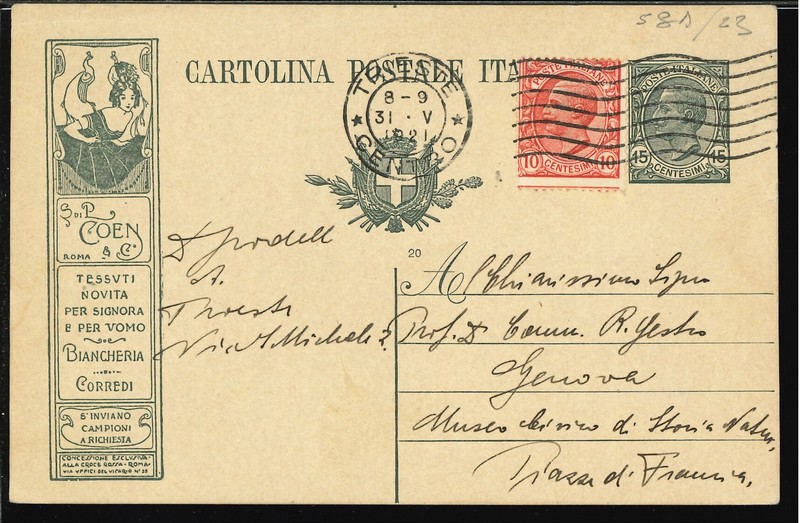 58A/23
CARTOLINA POSTALE ITA
TRIESTE
8-9
31 · V
1921
CENTRO
POSTE ITALIANE
10 CENTESIMI 10
POSTE ITALIANE
15 CENTESIMI 15
S. DI P.
COEN
& C.
ROMA
TESSUTI
NOVITA
PER SIGNORA
E PER VOMO
BIANCHERIA
CORREDI
S'INVIANO
CAMPIONI
A RICHIESTA
CONCESSIONE ESCLUSIVA
ALLA CROCE ROSSA - ROMA
VIA UFFICI DEL VICARIO N° 35
A.
Trieste
Via S. Michele 2
20
A Chiarissimo Signor
Prof. D Comm. R. Gestro
Genova
Museo Civico di Storia Natur.
Piazza di Francia.